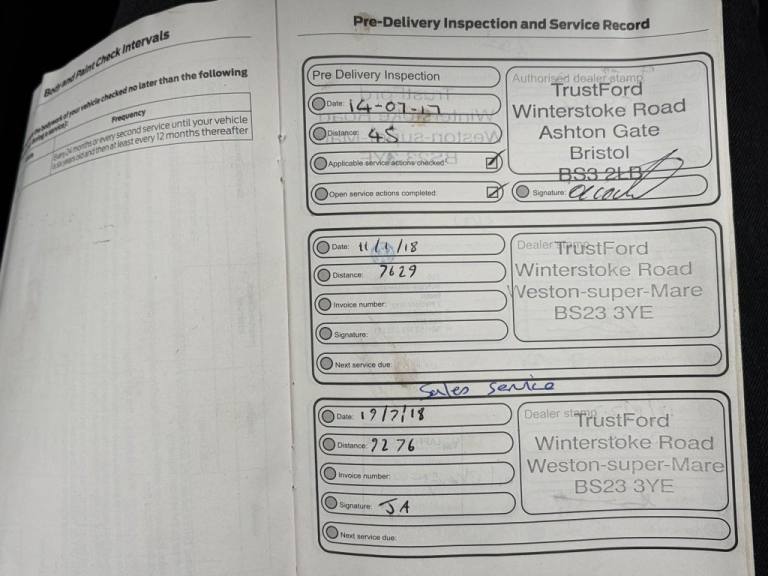 Body and Paint Check Intervals
the bodywork of your vehicle checked no later than the following
during a service):
Frequency
Every 24 months or every second service until your vehicle
is six years old and then at least every 12 months thereafter
Pre-Delivery Inspection and Service Record
Pre Delivery Inspection
Date: 14-07-17
Distance: 45
Applicable service actions checked:
Open service actions completed:
Authorised dealer stamp
TrustFord
Winterstoke Road
Ashton Gate
Bristol
BS3 2LB
Signature:
Date: 11/1/18
Distance: 7629
Invoice number:
Signature:
Next service due:
Dealer stamp
TrustFord
Winterstoke Road
Weston-super-Mare
BS23 3YE
Sales Service
Date: 19/7/18
Distance: 9276
Invoice number:
Signature: JA
Next service due:
Dealer stamp
TrustFord
Winterstoke Road
Weston-super-Mare
BS23 3YE